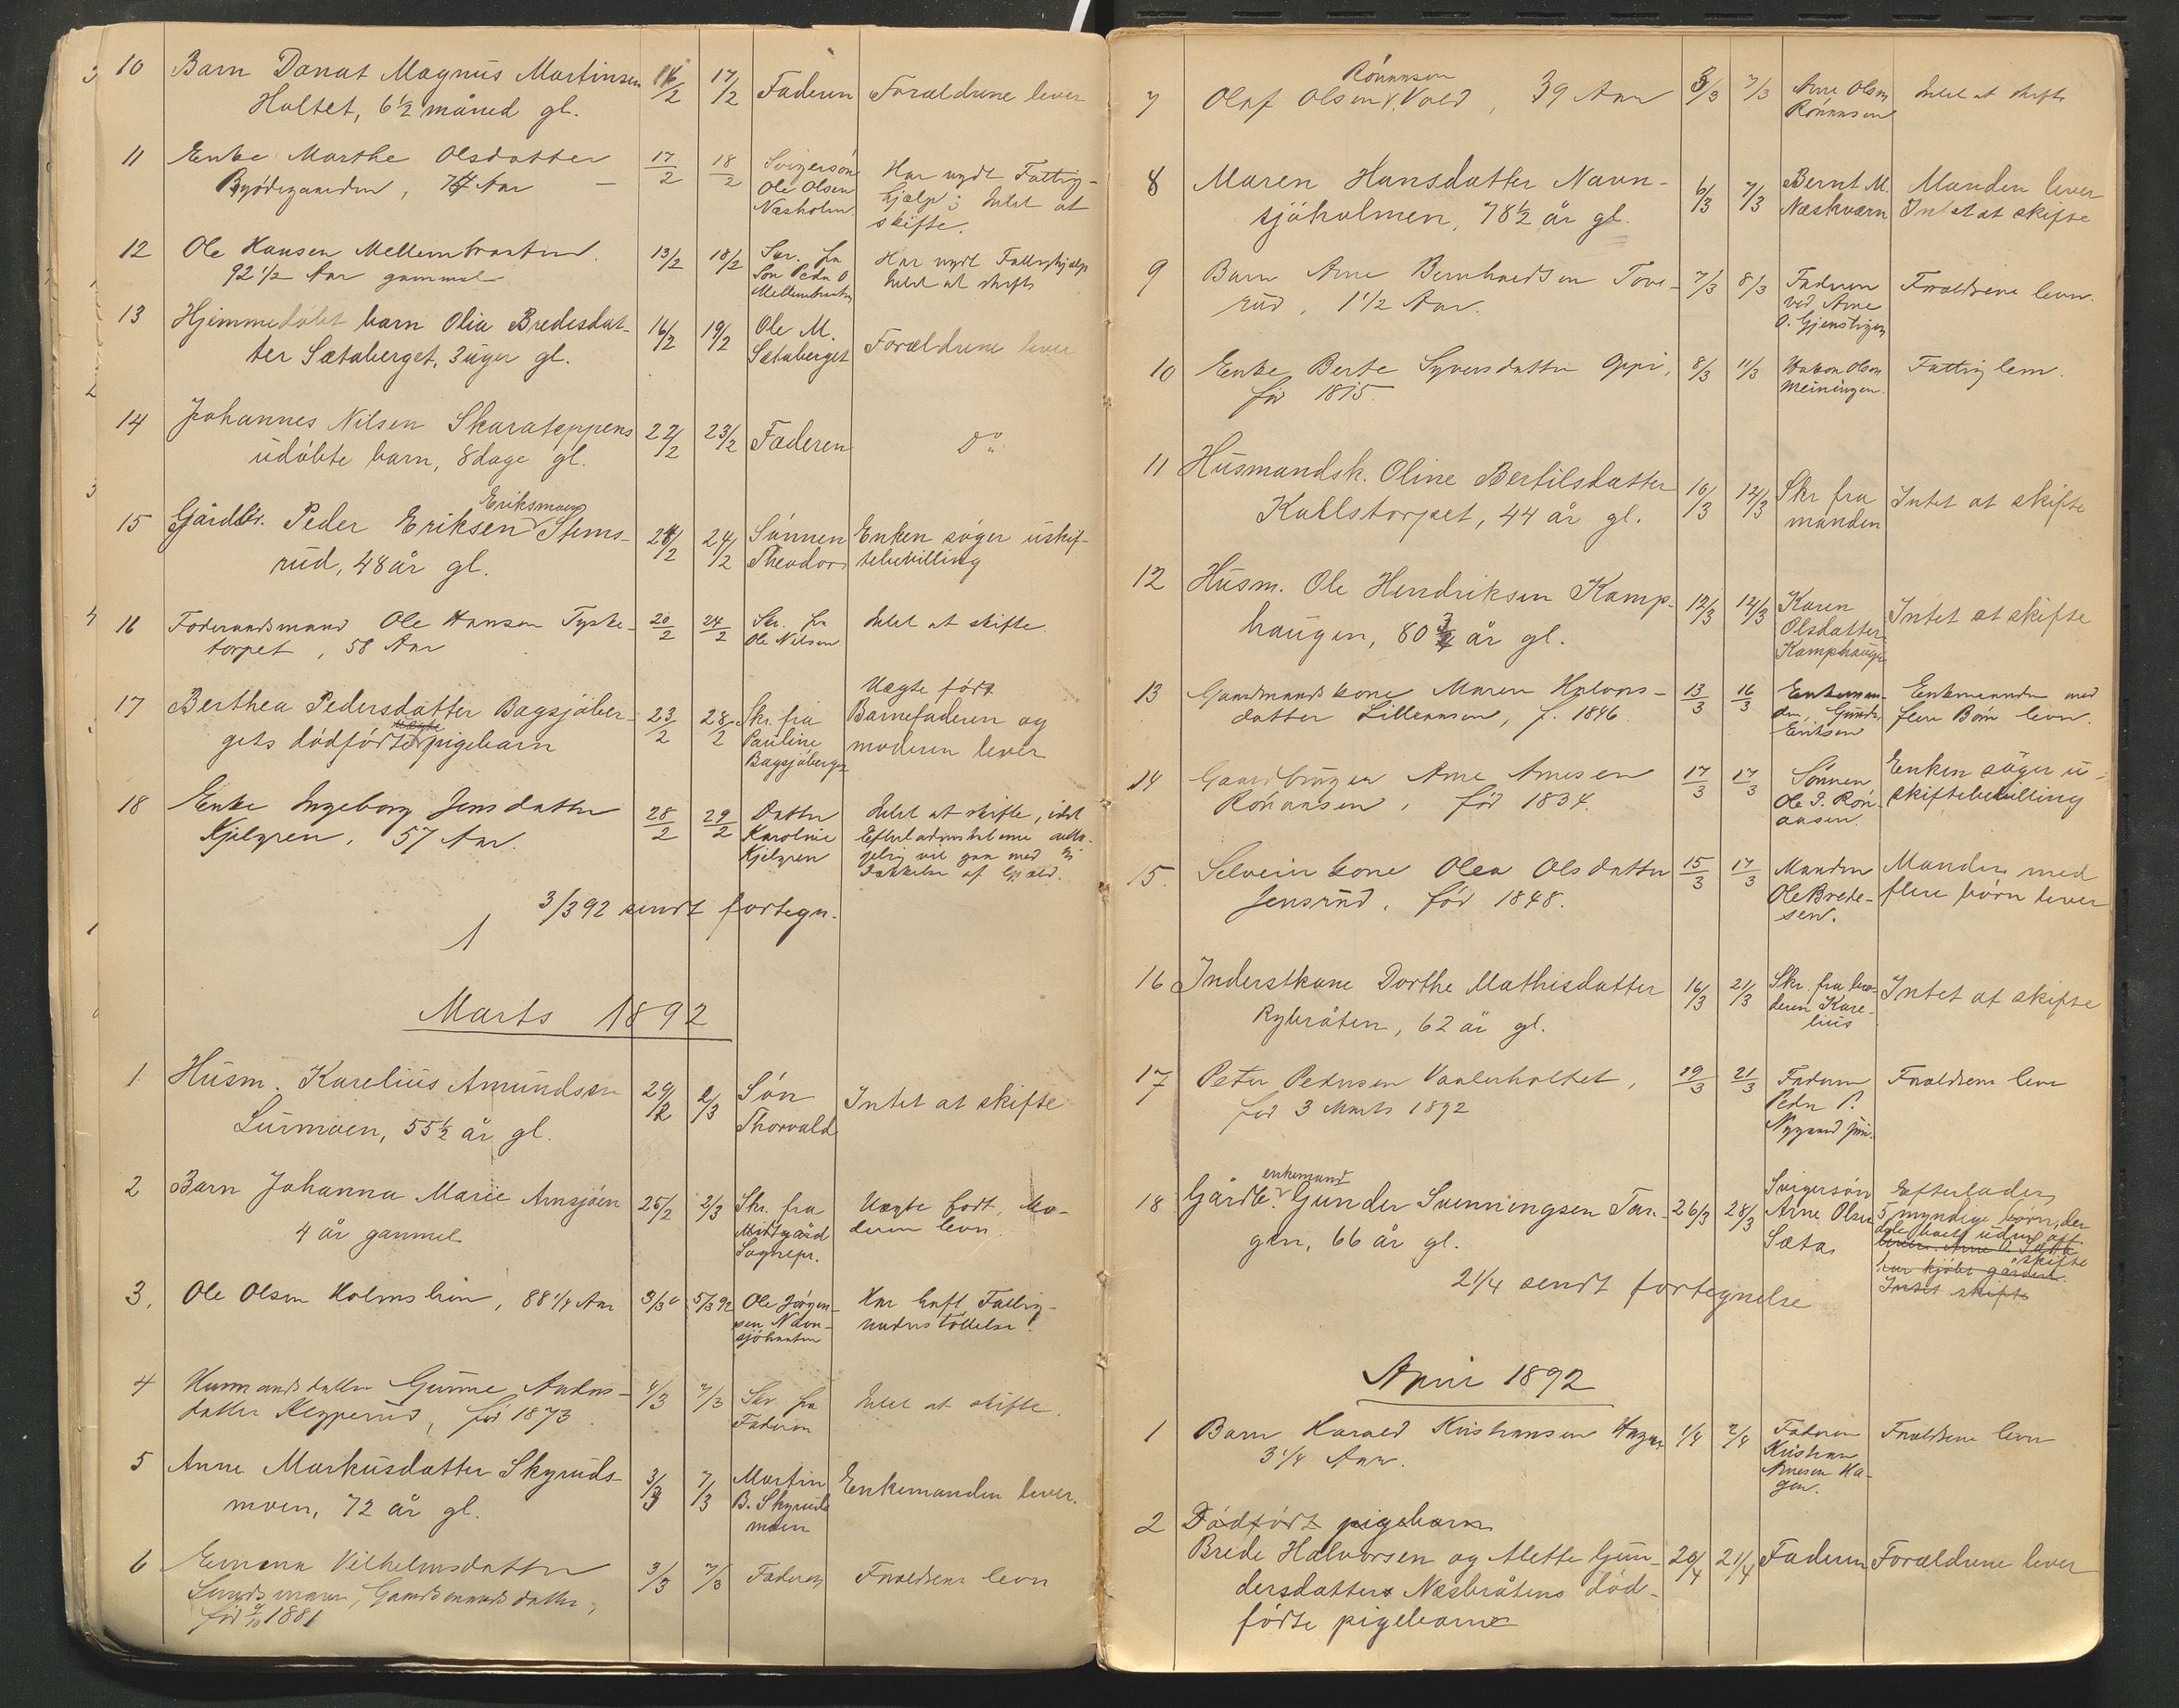 10 Barn Donat Magnus Martinsen 16/2 17/2 Faderen Forældrene lever
Holtet, 6½ måned gl.
11 Enke Marthe Olsdatter 17/2 18/2 Svigersøn Har nydt Fattig-
Aar Ole Olsen hjælp; Intet at
Næsholm. skifte.
12 Ole Hansen 13/2 18/2 Skr. fra Har nydt Fattighjælp
92 1/2 Aar gammel Søn Peder O. Intet at skifte
13 Hjemmedøbt barn Olia Bredesdat- 16/2 19/2 Ole M. Forældrene lever
ter Sætaberget, 3 uger gl. Sætaberget
14 Johannes Nilsen Skarateppens 22/2 23/2 Faderen Do
udøbte barn, 8 dage gl.
Eriksmoen
15 Gårdbr. Peder Eriksen Stems- 24/2 Sønnen Enken søger uskif-
rud, 48 år gl. Theodor tebevilling
16 Føderaadsmand Ole Hansen Tyske- 20/2 24/2 Skr. fra Intet at skifte.
torpet, 58 Aar Ole Nilsen
17 Berthea Pedersdatter Bagsjøber- 23/2 28/2 Skr. fra Uægte født
gets dødfødte uægte pigebarn Pauline Barnefaderen og
Bagsjøberget moderen lever
18 Enke Ingeborg Jensdatter 28/2 29/2 Datter Intet at skifte, idet
Kjelgren, 57 Aar. Karoline
Kjelgren Dækkelse af Gjæld.
3/3 92 sendt fortegn.
Marts 1892
1 Husm. Karelius Amundsen 29/2 2/3 Søn Intet at skifte
Lurmoen, 55½ år gl. Thorvald
2 Barn Johanna Marie Arnsjøen 25/2 2/3 Skr. fra Uægte født, Mo-
4 år gammel Midtgård deren lever.
Sognepr.
3. Ole Olsen 88 1/4 Aar 3/3 5/3 92 Ole Jørgen- Har havt Fattig-
sen Navn- understøttelse.
4 Husmandsdatter Gunne Anders- 1/3 7/3 Skr. fra Intet at skifte.
datter Klypperud, fød 1873. Faderen
5 Anne Markusdatter Skyruds- 3/3 7/3 Martin Enkemanden lever.
moen, 72 år gl. B. Skyruds
moen
6 Emma Vilhelmsdatter 3/3 7/3 Faderen Forældrene lever
Gaardmandsdatter,
fød 1881
Rønaasen
7 Olaf Olsen v. Vold, 39 Aar 3/3 7/3 Arne Olsen Intet at skifte
Rønaasen
8 Maren Hansdatter Navn- 6/3 7/3 Bernt M. Manden lever
sjøholmen, 78½ år gl. Næskværn Intet at skifte
9 Barn Arne Bernhardsen Tove- 7/3 8/3 Faderen Forældrene lever.
rud, 1 1/2 Aar. ved Arne
O. Gjenstigen
10 Enke Berte Syversdatter Oppi, 8/3 11/3 Fattiglem.
fød 1815. Meiningen.
11 Husmandsk. Oline Bertilsdatter 10/3 12/3 Skr fra Intet at skifte
Kallstorpet, 44 år gl. manden
12 Husm. Ole Hendriksen Kamp- 12/3 12/3 Karen Intet at skifte
haugen, 80 3/4 år gl. Olsdatter
Kamphaugen
13 Gaardmandskone Maren Halvors- 13/3 16/3 Enkeman- Enkemanden med
datter Lilleaasen, f. 1846. den Gunder flere Børn lever.
Eriksen
14 Gaardbruger Arne Arnesen 17/3 17/3 Sønnen Enken søger u-
Rønaasen, fød 1834. Ole J. Røn- skiftebevilling
aasen.
15. Selveierkone Olea Olsdatter 15/3 17/3 Manden Manden med
Jensrud, fød 1848. Ole Brede- flere børn lever
sen.
16 Inderstkone Dorthe Mathisdatter 16/3 21/3 Skr. fra bro- Intet at skifte
Rybråten, 62 år gl. deren Kare-
lius
17 Peter Pedersen Vaalerholtet, 19/3 21/3 Faderen Forældrene lever
fød 3 Marts 1892 Peder P.
Nygaard jun.
enkemand
18 Gårdbr. Gunder Svenningsen Tan- 26/3 28/3 Svigersøn Efterlader
gen, 66 år gl. Arne Olsen 5 myndige børn, der
Sæta skifte
har kjøbt gården.
Intet skifte
21/4 sendt fortegnelse
April 1892
1 Barn Harald Kristiansen Hagen 1/4 2/4 Faderen Forældrene lever
3 1/4 Aar. Kristian
Arnesen Ha-
gen.
2 Dødfødt pigebarn
Brede Halvorsen og Mette Gun- 20/4 21/4 Faderen Forældrene lever
dersdatter Næsbråtens død-
fødte pigebarn